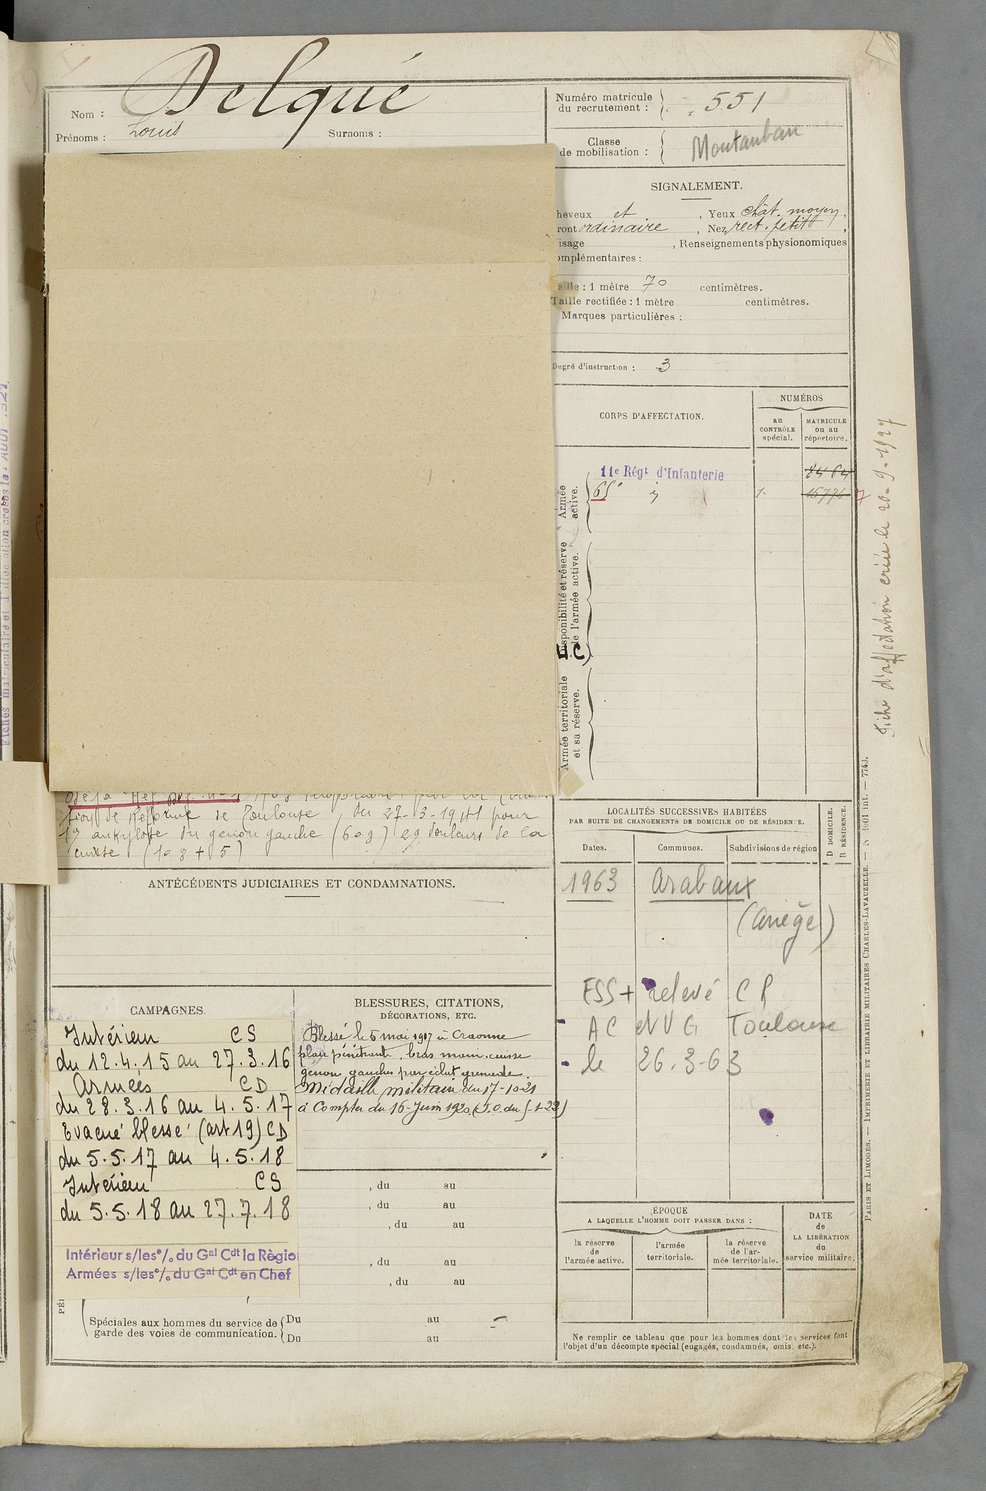 Nom : Delqué
Prénoms : Louis Surnoms :
Numéro matricule
du recrutement : 551
Classe
de mobilisation : Montauban
SIGNALEMENT.
heveux et , Yeux chât. moyen,
ront ordinaire , Nez rect. petit ,
isage , Renseignements physionomiques
omplémentaires :
aille : 1 mètre 70 centimètres.
Taille rectifiée : 1 mètre centimètres.
Marques particulières :
Degré d'instruction : 3
CORPS D'AFFECTATION.
NUMÉROS
au
CONTRÔLE
spécial.
MATRICULE
ou au
répertoire.
Armée
active.
11e Régt d'Infanterie
Disponibilité et réserve
de l'armée active.
Armée territoriale
et sa réserve.
Fiche d'affectation créée le 20-9-1927
tion de Réforme de Toulouse, du 27-3-1941 pour
1º ankylose du genou gauche (60%) 2º douleurs de la
cuisse (10% + 5)
ANTÉCÉDENTS JUDICIAIRES ET CONDAMNATIONS.
LOCALITÉS SUCCESSIVES HABITÉES
PAR SUITE DE CHANGEMENTS DE DOMICILE OU DE RÉSIDENCE.
Dates. Communes. Subdivisions de région
D DOMICILE.
R RÉSIDENCE.
1963 Arabaux
(Ariège)
ESS + relevé CR
AC et VG Toulouse
le 26-3-63
CAMPAGNES.
Intérieur CS
du 12.4.15 au 27.3.16
Armées CD
du 28.3.16 au 4.5.17
Evacué blessé (art 19) CD
du 5.5.17 au 4.5.18
Intérieur CS
du 5.5.18 au 27.7.18
Intérieur s/les º/₀ du Gal Cdt la Règio
Armées s/les º/₀ du Gal Cdt en Chef
BLESSURES, CITATIONS,
DÉCORATIONS, ETC.
Blessé le 5 mai 1917 à Craonne
plaie pénétrante, bras, main, cuisse
genou gauches par éclat grenade.
Médaille militaire du 17-10-21
à Compter du 16 Juin 1920
, du au
, du au
, du au
, du au
, du au
Spéciales aux hommes du service de
garde des voies de communication.
Du au
Du au
ÉPOQUE
A LAQUELLE L'HOMME DOIT PASSER DANS :
la réserve
de
l'armée active.
l'armée
territoriale.
la réserve
de l'ar-
mée territoriale.
DATE
de
LA LIBÉRATION
du
service militaire.
Ne remplir ce tableau que pour les hommes dont les services font
l'objet d'un décompte spécial (engagés, condamnés, omis, etc.).
PARIS ET LIMOGES. — IMPRIMERIE ET LIBRAIRIE MILITAIRES CHARLES-LAVAUZELLE.